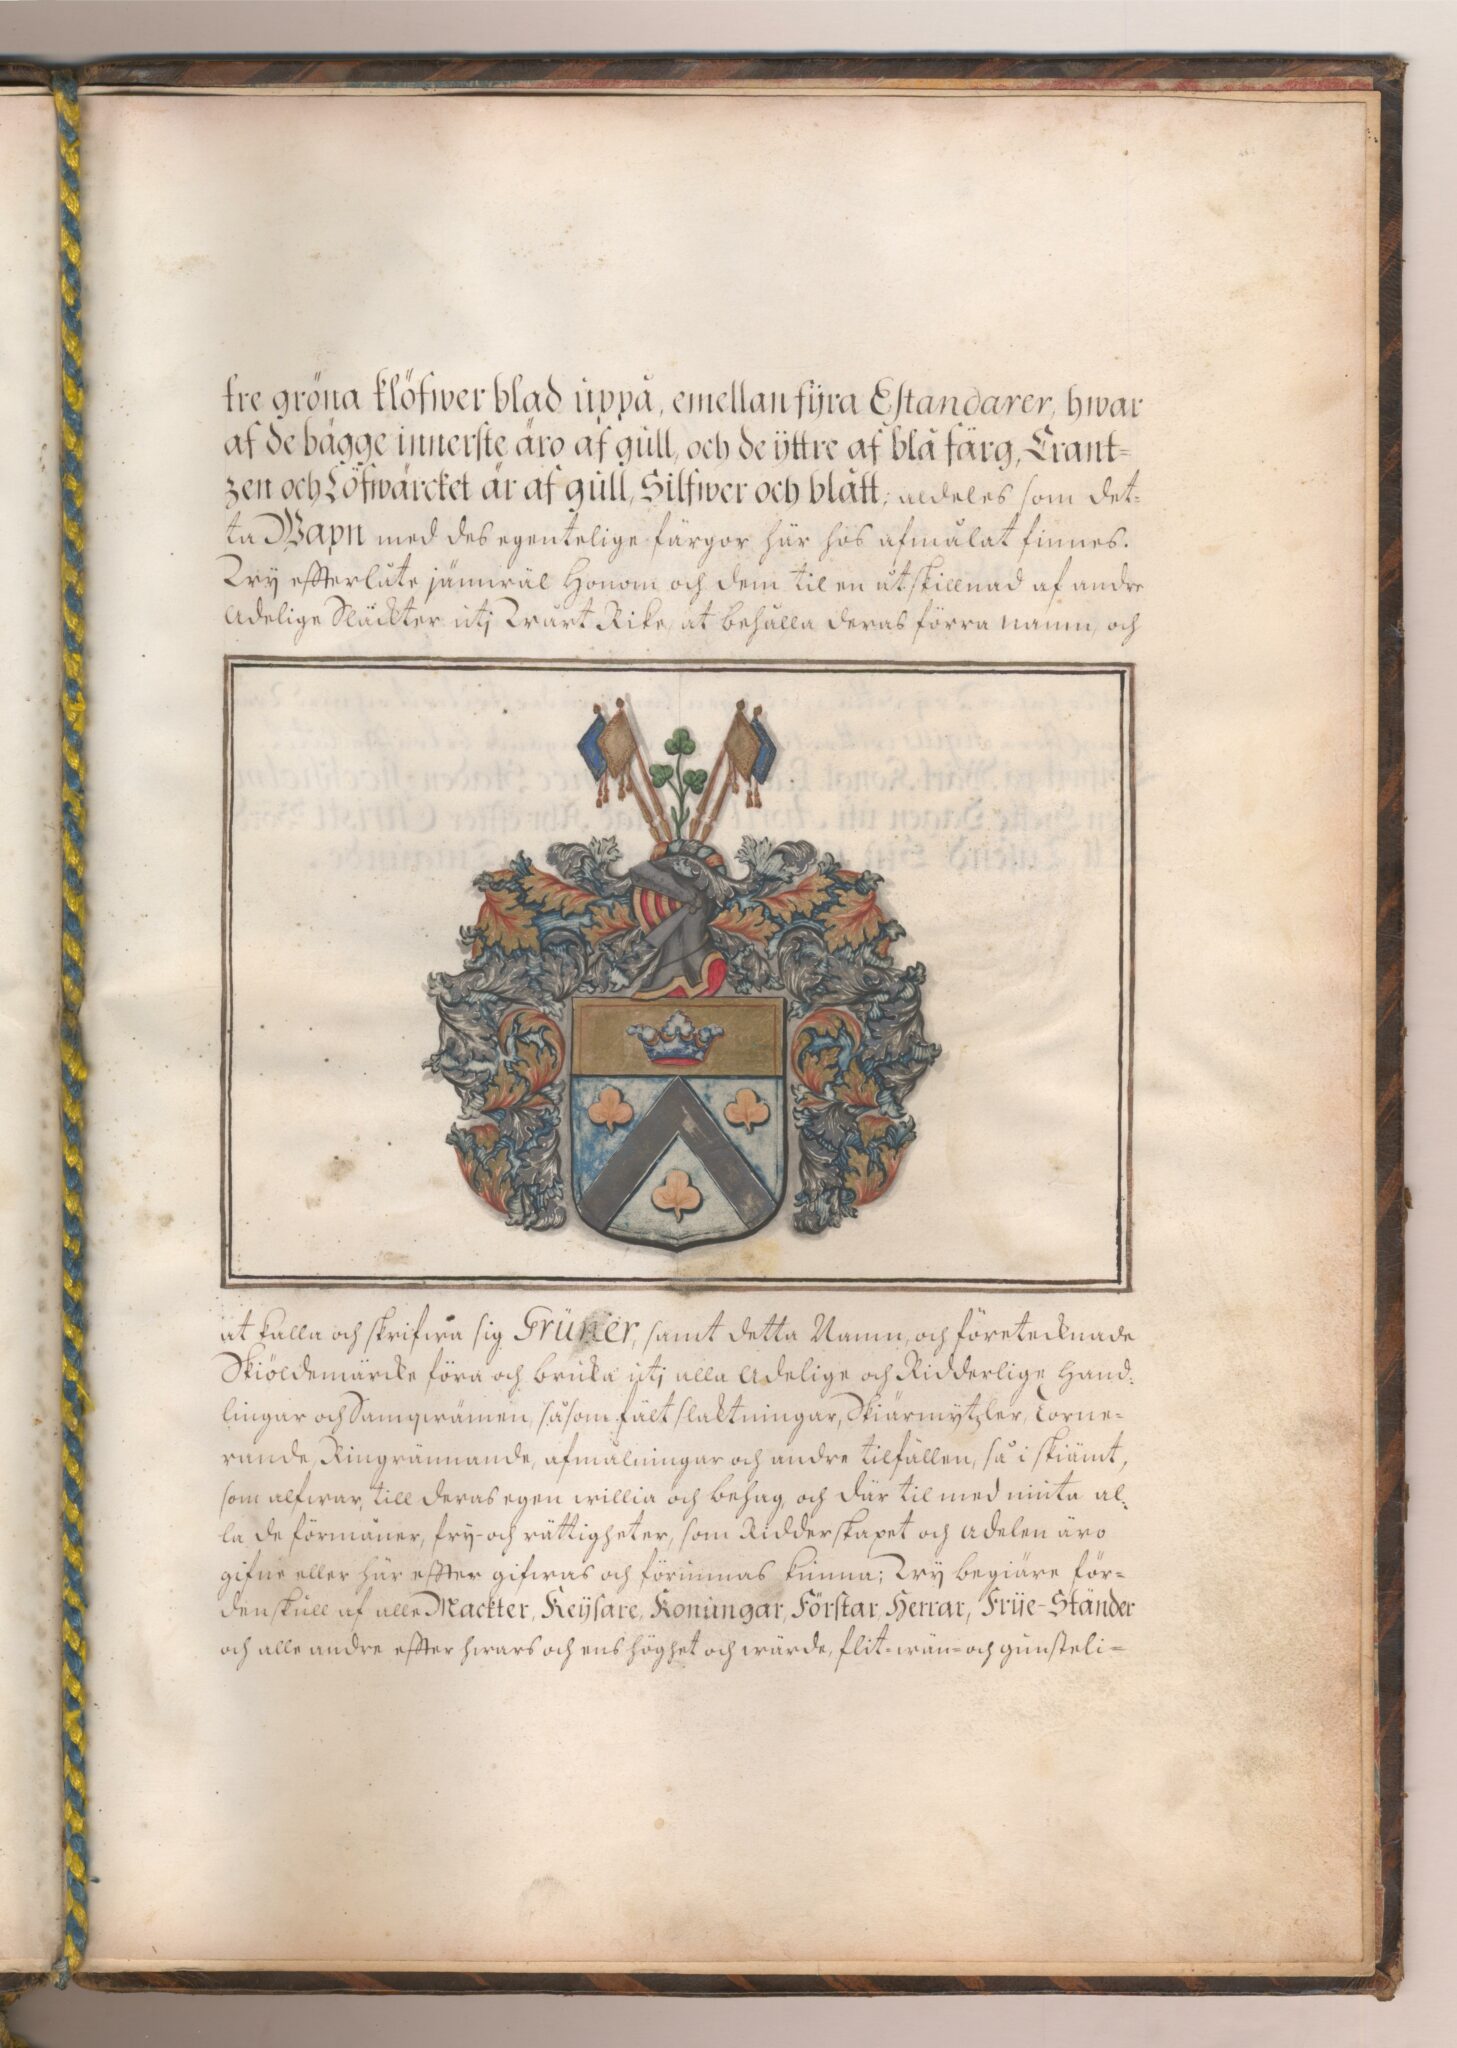 tre gröna klöfwer blad uppå, emellan fÿra Estandarer, hwar
af de bägge innerste äro af gull, och de ÿttre af blå färg, Crant=
zen och Löfwärcket är af gull, Silfwer och blått; aldeles som det=
ta Wapn med des egentelige färgor här hos afmålat finnes.
Wy effterlåte jämwäl Honom och dem til en åtskillnad af andre
Adelige Släckter uti Wårt Rike, at behålla deras förra namn, och
at kalla och skrifwa sig Grüner, samt detta Namn, och företecknade
Skiöldemärcke föra och bruka uti alla Adelige och Ridderlige Hand=
lingar och Samqwämen, såsom fält slaktningar, Skiärmytzler, Torne=
rande, Ringrännande, afmålningar och andre tilfällen, så i skiämt,
som alfwar, till deras egen willia och behag, och där til med niuta al=
la de förmåner, fry- och rättigheter, som Ridderskapet och Adelen äro
gifne eller här effter gifwas och förunnas kunna; Wy begiäre för=
denskull af alle Mackter, Keÿsare, Konungar, Förstar, Herrar, Frije-Ständer
och alle andre effter hwars och ens höghet och wärde, flit= wän= och gunsteli=